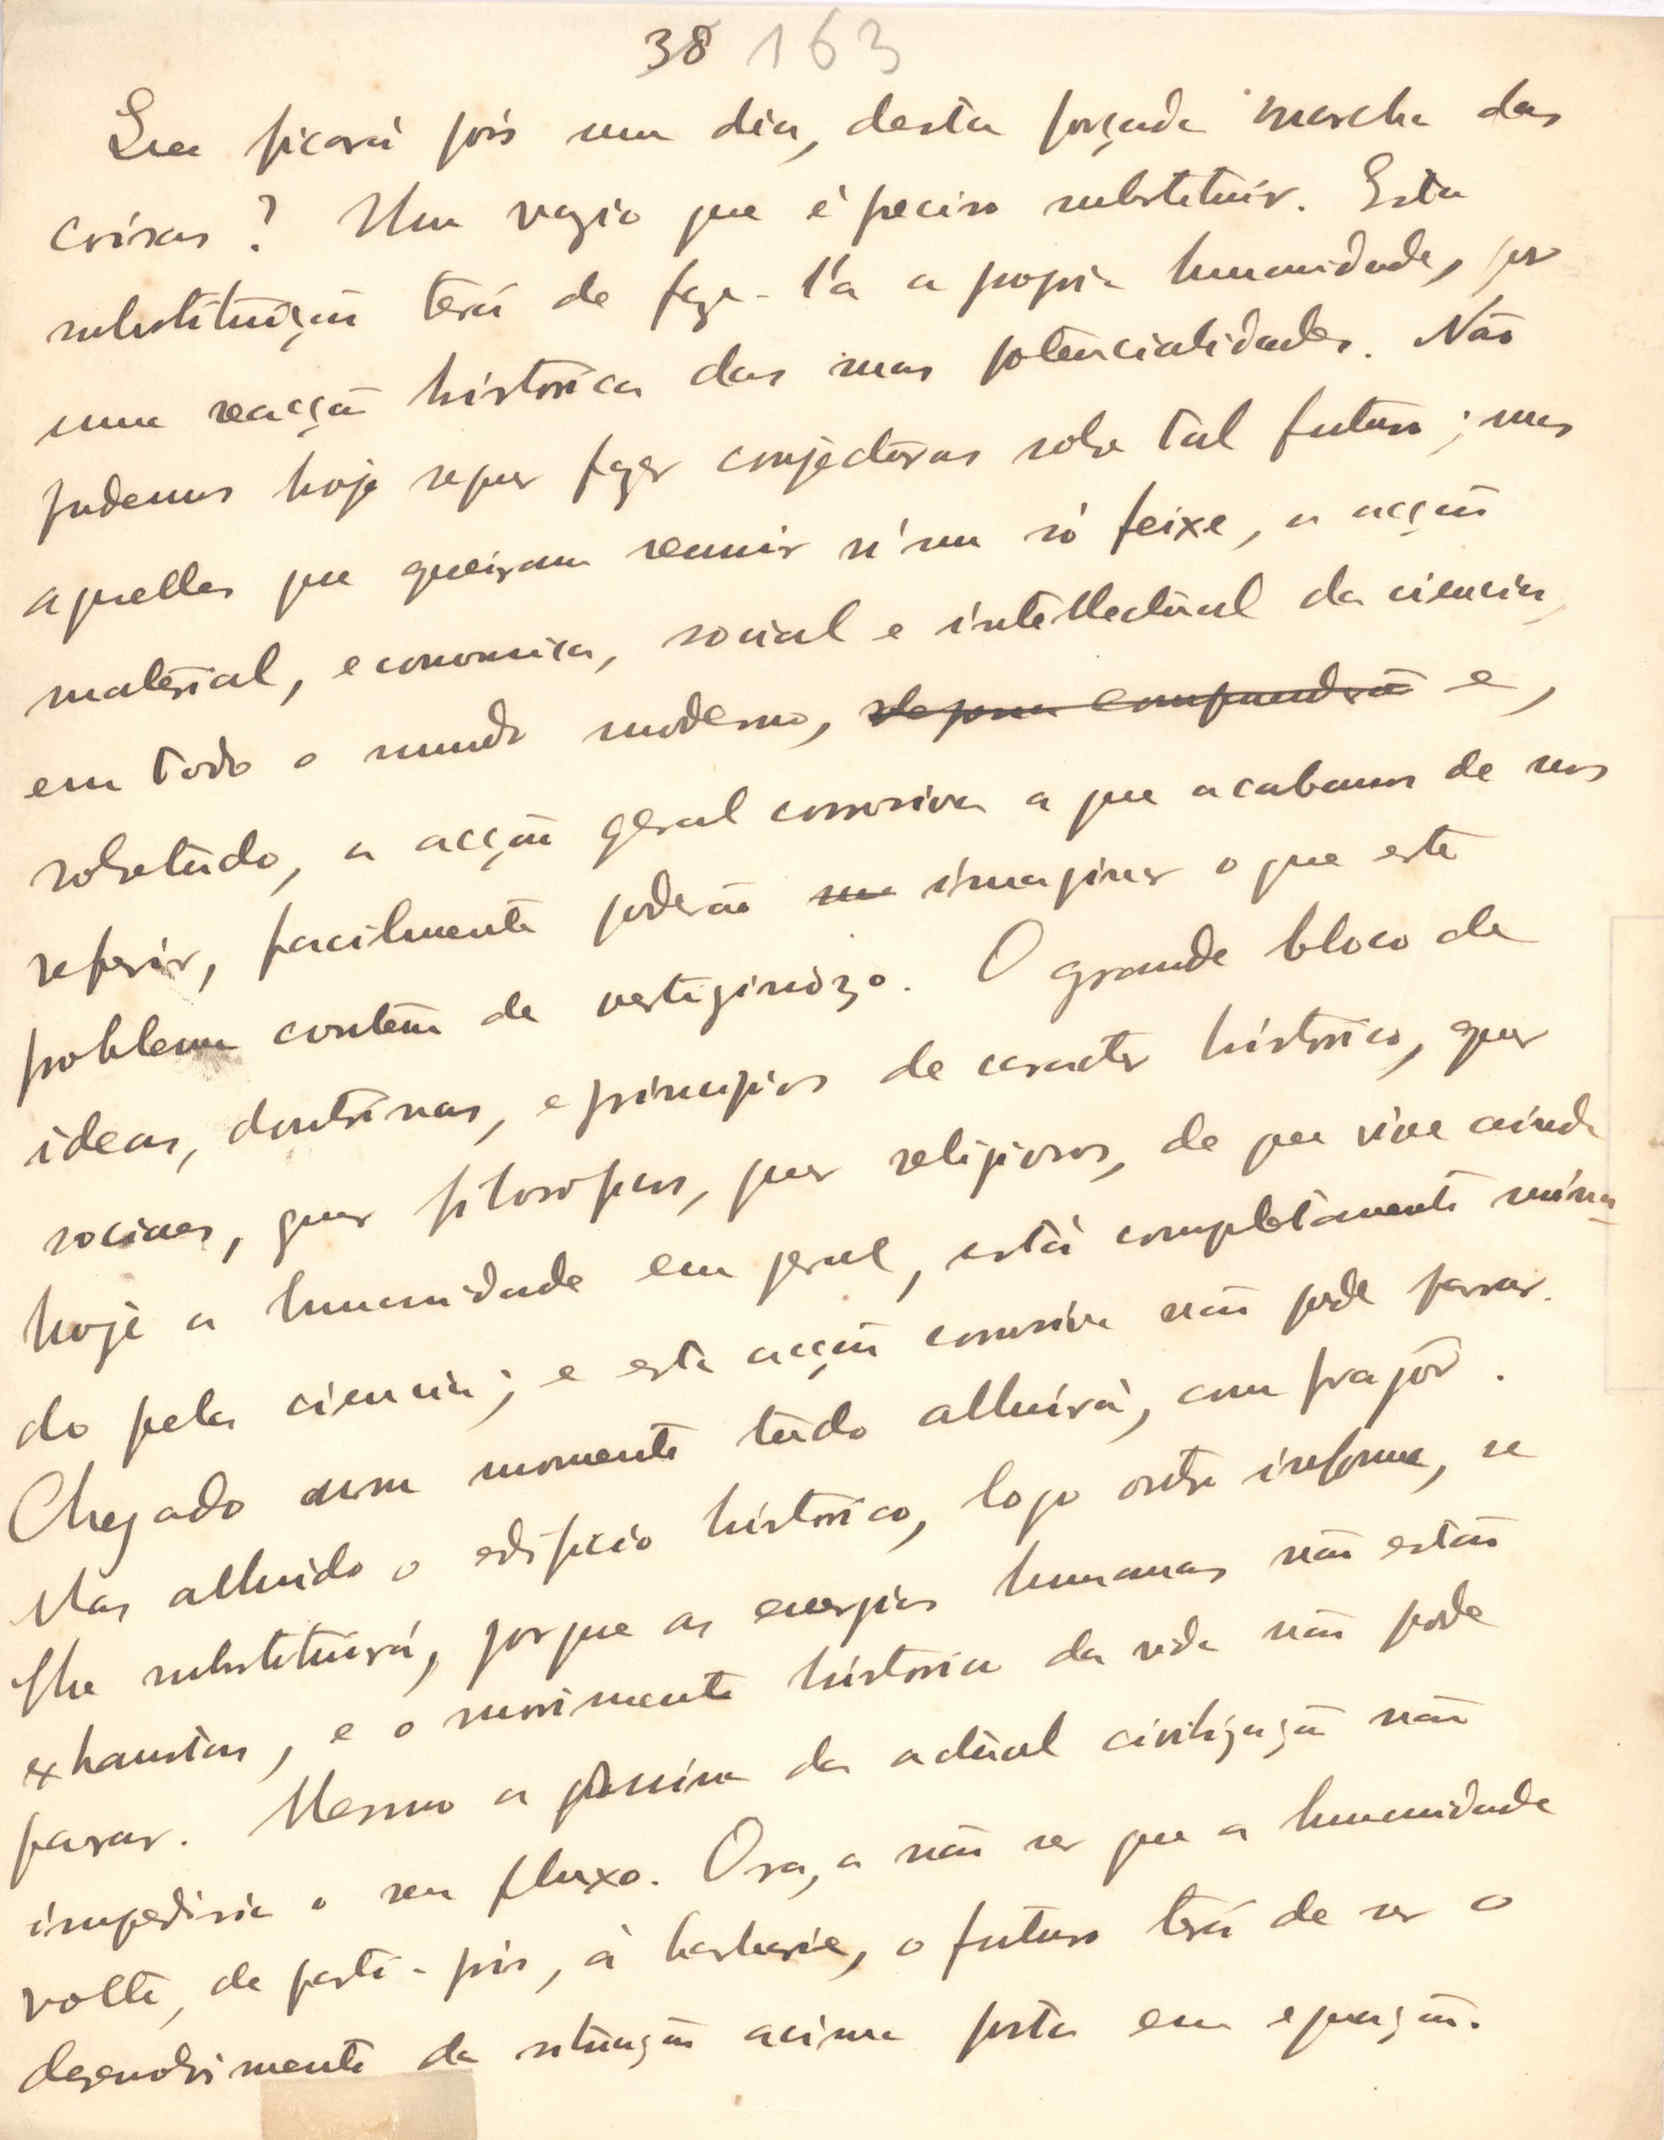 38 163
Que ficará pois um dia, desta forçada marcha das
coisas? Um vazio que é preciso substituir. Esta
substituição terá de faze-l'a a propria humanidade, por
uma reacção historica das suas potencialidades. Não
podemos hoje sequer fazer conjecturas sobre tal futuro; mas
aquelles que queiram reunir n'um só feixe, a acção
material, economica, social e intellectual da ciencia,
em todo o mundo moderno, e,
sobretudo, a acção geral corrosiva a que acabamos de nos
referir, facilmente poderão imaginar o que este
problema contém de vertiginozo. O grande bloco de
ideas, doutrinas, e principios de caracter historico, quer
sociaes, quer filosoficos, quer religiosos, de que vive ainda
hoje a humanidade em geral, está completamente mina-
do pela ciencia; e esta acção corrosiva não pode parar.
Chegado um momento tudo alluirá, com fragôr.
Mas alluido o edificio historico, logo outro informe, se
lhe substituirá, porque as energias humanas não estão
exhaustas, e o movimento historico da vida não pode
parar. Mesmo a da actual civilização não
impediria o seu fluxo. Ora, a não ser que a humanidade
volte, de parti-pris, à barbarie, o futuro terá de ser o
desenvolvimento da situação acima posta em equação.